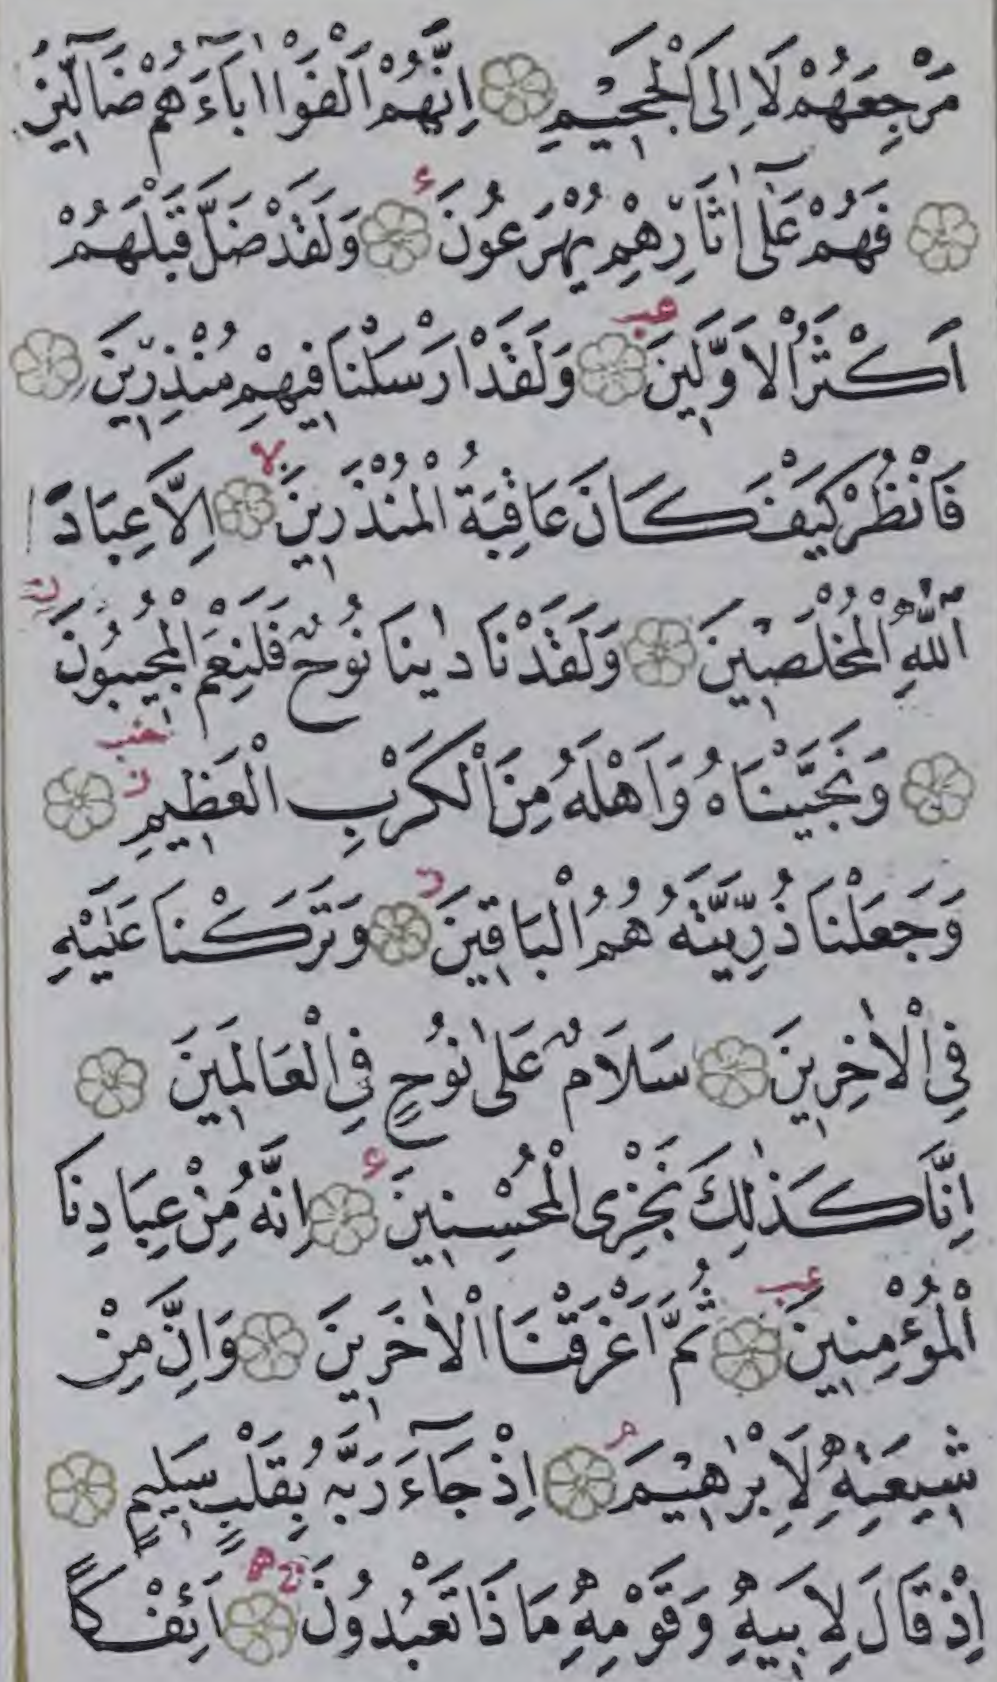 مَرْجِعَهُمْ لَا اِلَى الْجَحٖيمِ اِنَّهُمْ اَلْفَوْا اٰبَٓاءَهُمْ ضَٓالّٖينَ
فَهُمْ عَلٰٓى اٰثَارِهِمْ يُهْرَعُونَ وَلَقَدْ ضَلَّ قَبْلَهُمْ
اَكْثَرُ الْاَوَّلٖينَ وَلَقَدْ اَرْسَلْنَا فٖيهِمْ مُنْذِرٖينَ
فَانْظُرْ كَيْفَ كَانَ عَاقِبَةُ الْمُنْذَرٖينَ اِلَّا عِبَادَ
اللّٰهِ الْمُخْلَصٖينَ وَلَقَدْ نَادٰينَا نُوحٌ فَلَنِعْمَ الْمُجٖيبُونَ
وَنَجَّيْنَاهُ وَاَهْلَهُ مِنَ الْكَرْبِ الْعَظٖيمِ
وَجَعَلْنَا ذُرِّيَّتَهُ هُمُ الْبَاقٖينَ وَتَرَكْنَا عَلَيْهِ
فِى الْاٰخِرٖينَ سَلَامٌ عَلٰى نُوحٍ فِى الْعَالَمٖينَ
اِنَّا كَذٰلِكَ نَجْزِى الْمُحْسِنٖينَ اِنَّهُ مِنْ عِبَادِنَا
الْمُؤْمِنٖينَ ثُمَّ اَغْرَقْنَا الْاٰخَرٖينَ وَاِنَّ مِنْ
شٖيعَتِهٖ لَاِبْرٰهٖيمَ اِذْ جَٓاءَ رَبَّهُ بِقَلْبٍ سَلٖيمٍ
اِذْ قَالَ لِاَبٖيهِ وَقَوْمِهٖ مَاذَا تَعْبُدُونَ اَئِفْكًا